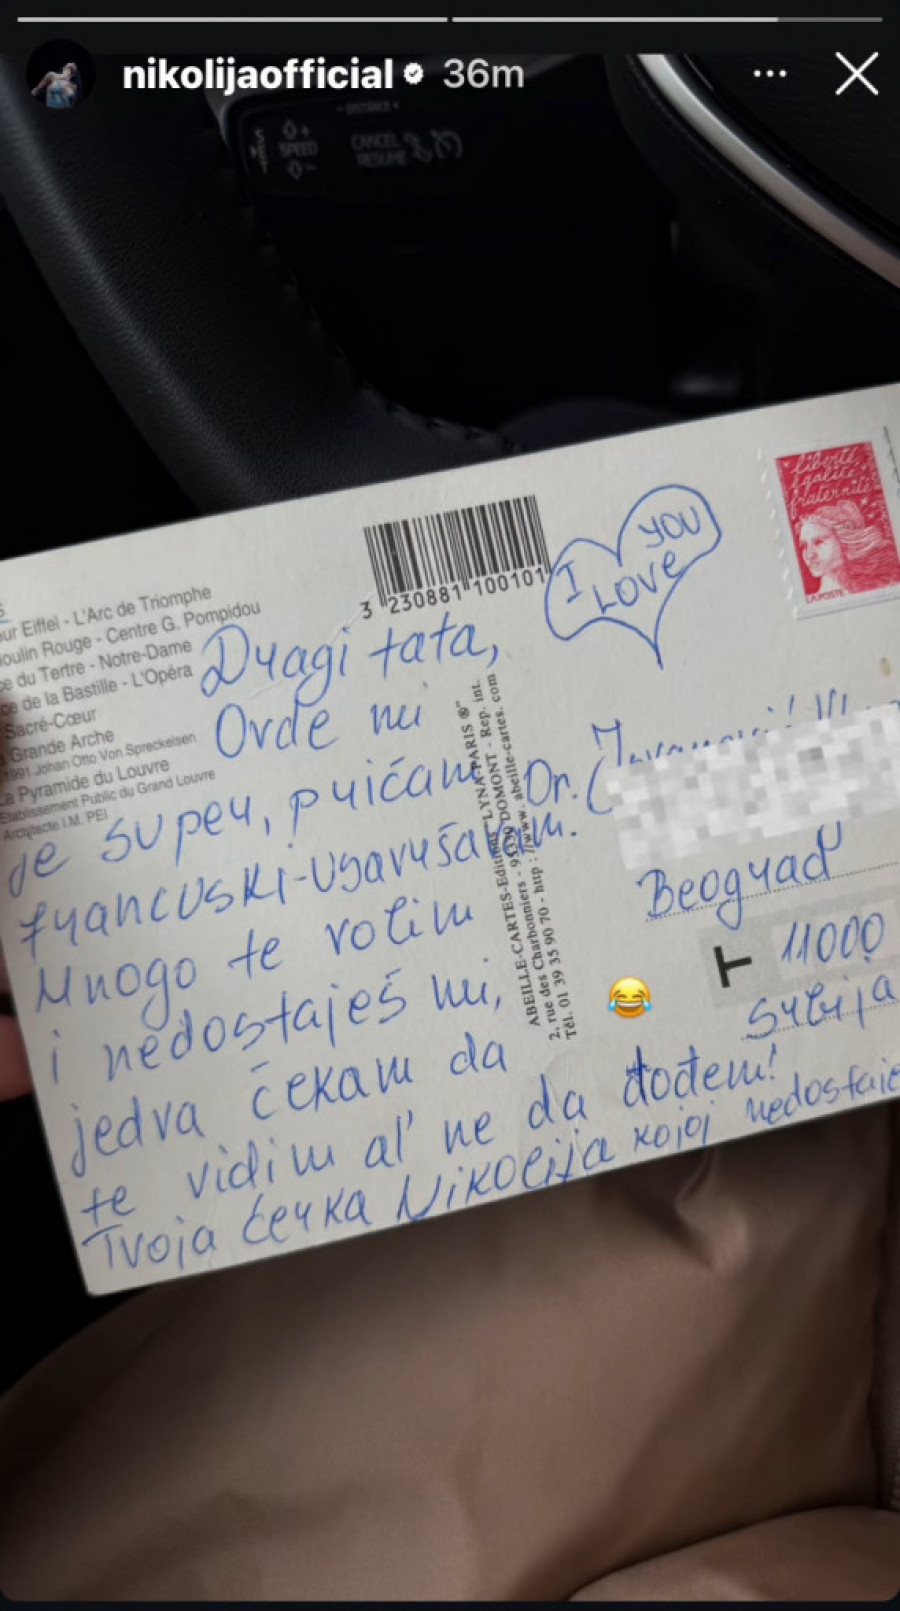 nikolijaofficial 36m
DISTANCE
SPEED
CANCEL
RESUME
our Eiffel - L'Arc de Triomphe
oulin Rouge - Centre G. Pompidou
ce du Tertre - Notre-Dame
ce de la Bastille - L'Opéra
Sacré-Cœur
Grande Arche
1991 Johan Otto Von Spreckelsen
La Pyramide du Louvre
Etablissement Public du Grand Louvre
Architecte I.M. PEI
3 230881 100101
I LOVE YOU
liberté
égalité
fraternité
LA POSTE
Dragi tata,
Ovde mi
je super, pričam
francuski-usavršavam.
Mnogo te volim
i nedostaješ mi,
jedva čekam da
te vidim al' ne da dođem!
Tvoja ćerka Nikolija kojoj nedostaje
ABEILLE-CARTES-Editions "LYNA-PARIS ®"
2, rue des Charbonniers - 95330 DOMONT - Rep. int.
Tél. 01 39 35 90 70 - http://www.abeille-cartes.com
Dr.
Beograd
T 11000
Srbija